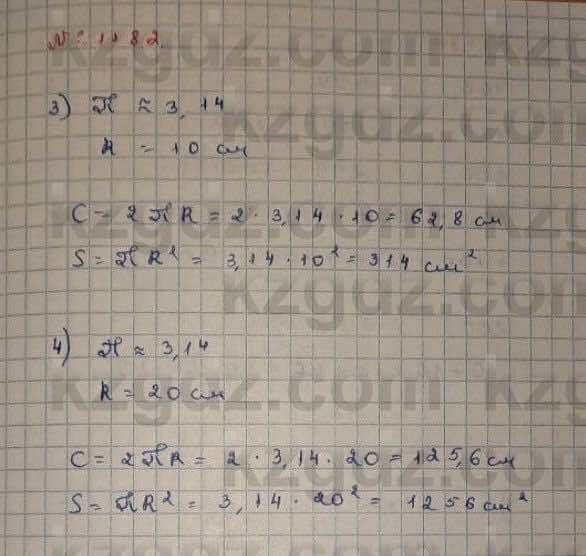 № 1182
kzgdz.com
3) π ≈ 3,14
R = 10 см
C = 2πR = 2 · 3,14 · 10 = 62,8 см
S = πR² = 3,14 · 10² = 314 см²
4) π ≈ 3,14
R = 20 см
C = 2πR = 2 · 3,14 · 20 = 125,6 см
S = πR² = 3,14 · 20² = 1256 см²